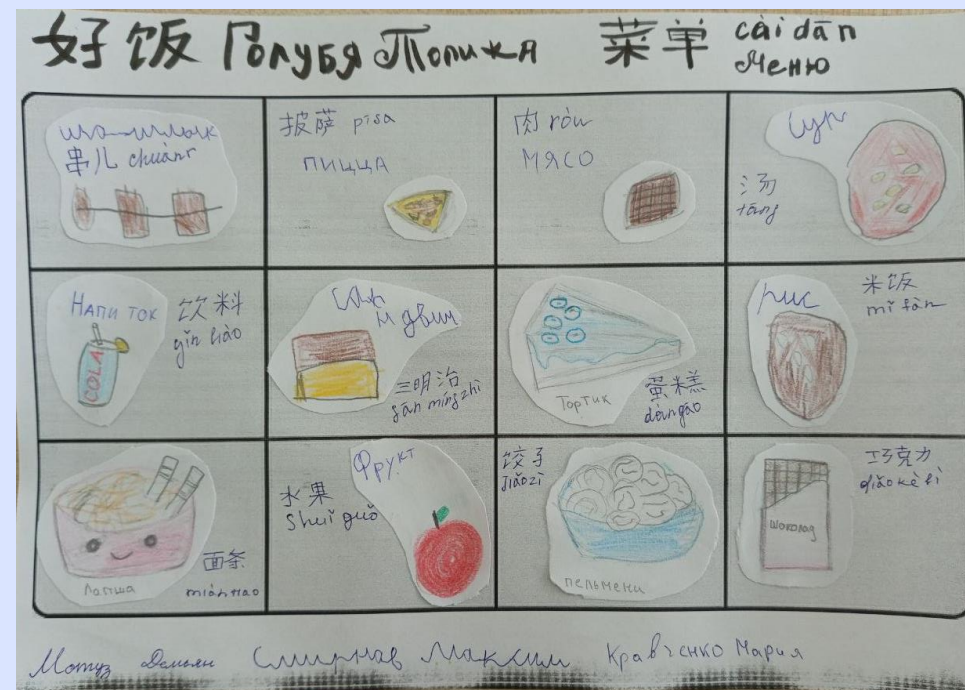 好饭 Голубя Толика 菜单 cài dān
Меню
шашлык
串儿 chuànr
披萨 pīsa
пицца
肉 ròu
мясо
Суп
汤
tāng
Напиток
饮料
yǐn liào
Сэндвич
三明治
sān míng zhì
Тортик
蛋糕
dàngāo
рис
米饭
mǐ fàn
COLA
Лапша
面条
miàntiáo
Фрукт
水果
Shuǐ guǒ
饺子
Jiǎozi
пельмени
巧克力
qiǎo kè lì
шоколад
Мотуз Демьян Смирнов Максим Кравченко Мария